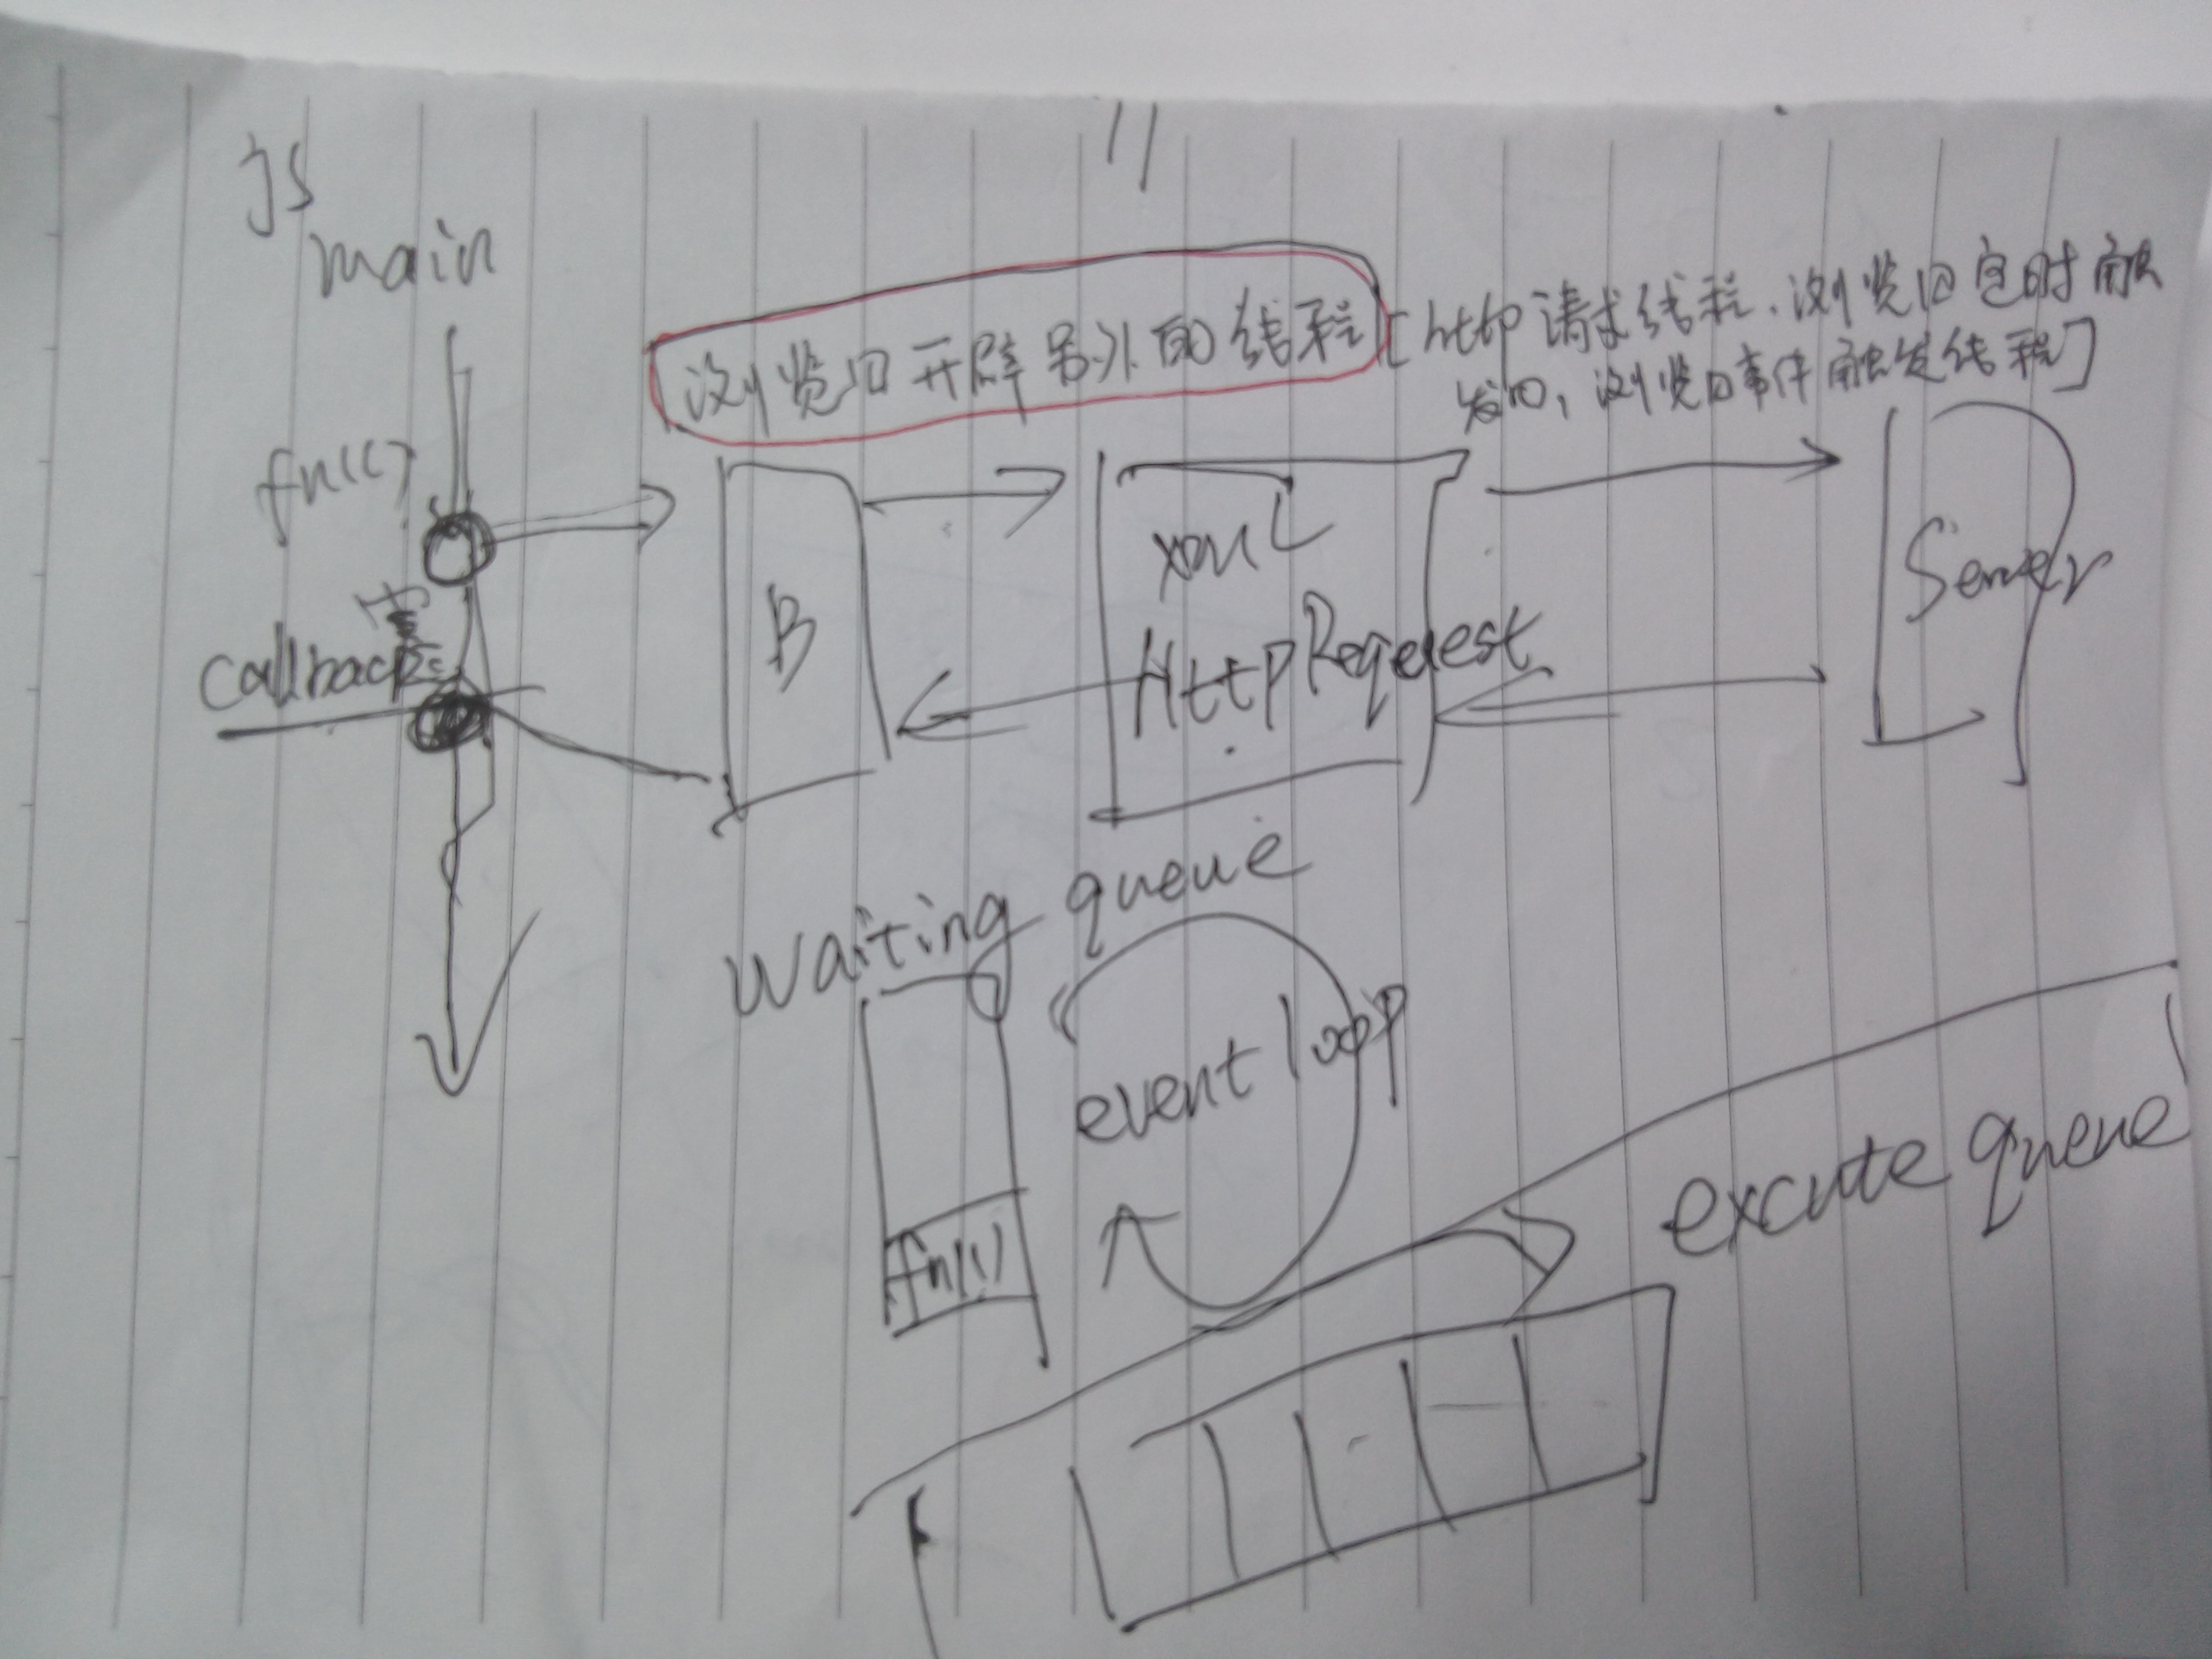 js
main
浏览囗开辟另外的线程 [http请求线程.浏览囗定时触
发囗,浏览囗事件触发线程]
fn1()
B
xml
HttpRequest
Server
callback
waiting queue
event loop
fn1()
excute queue